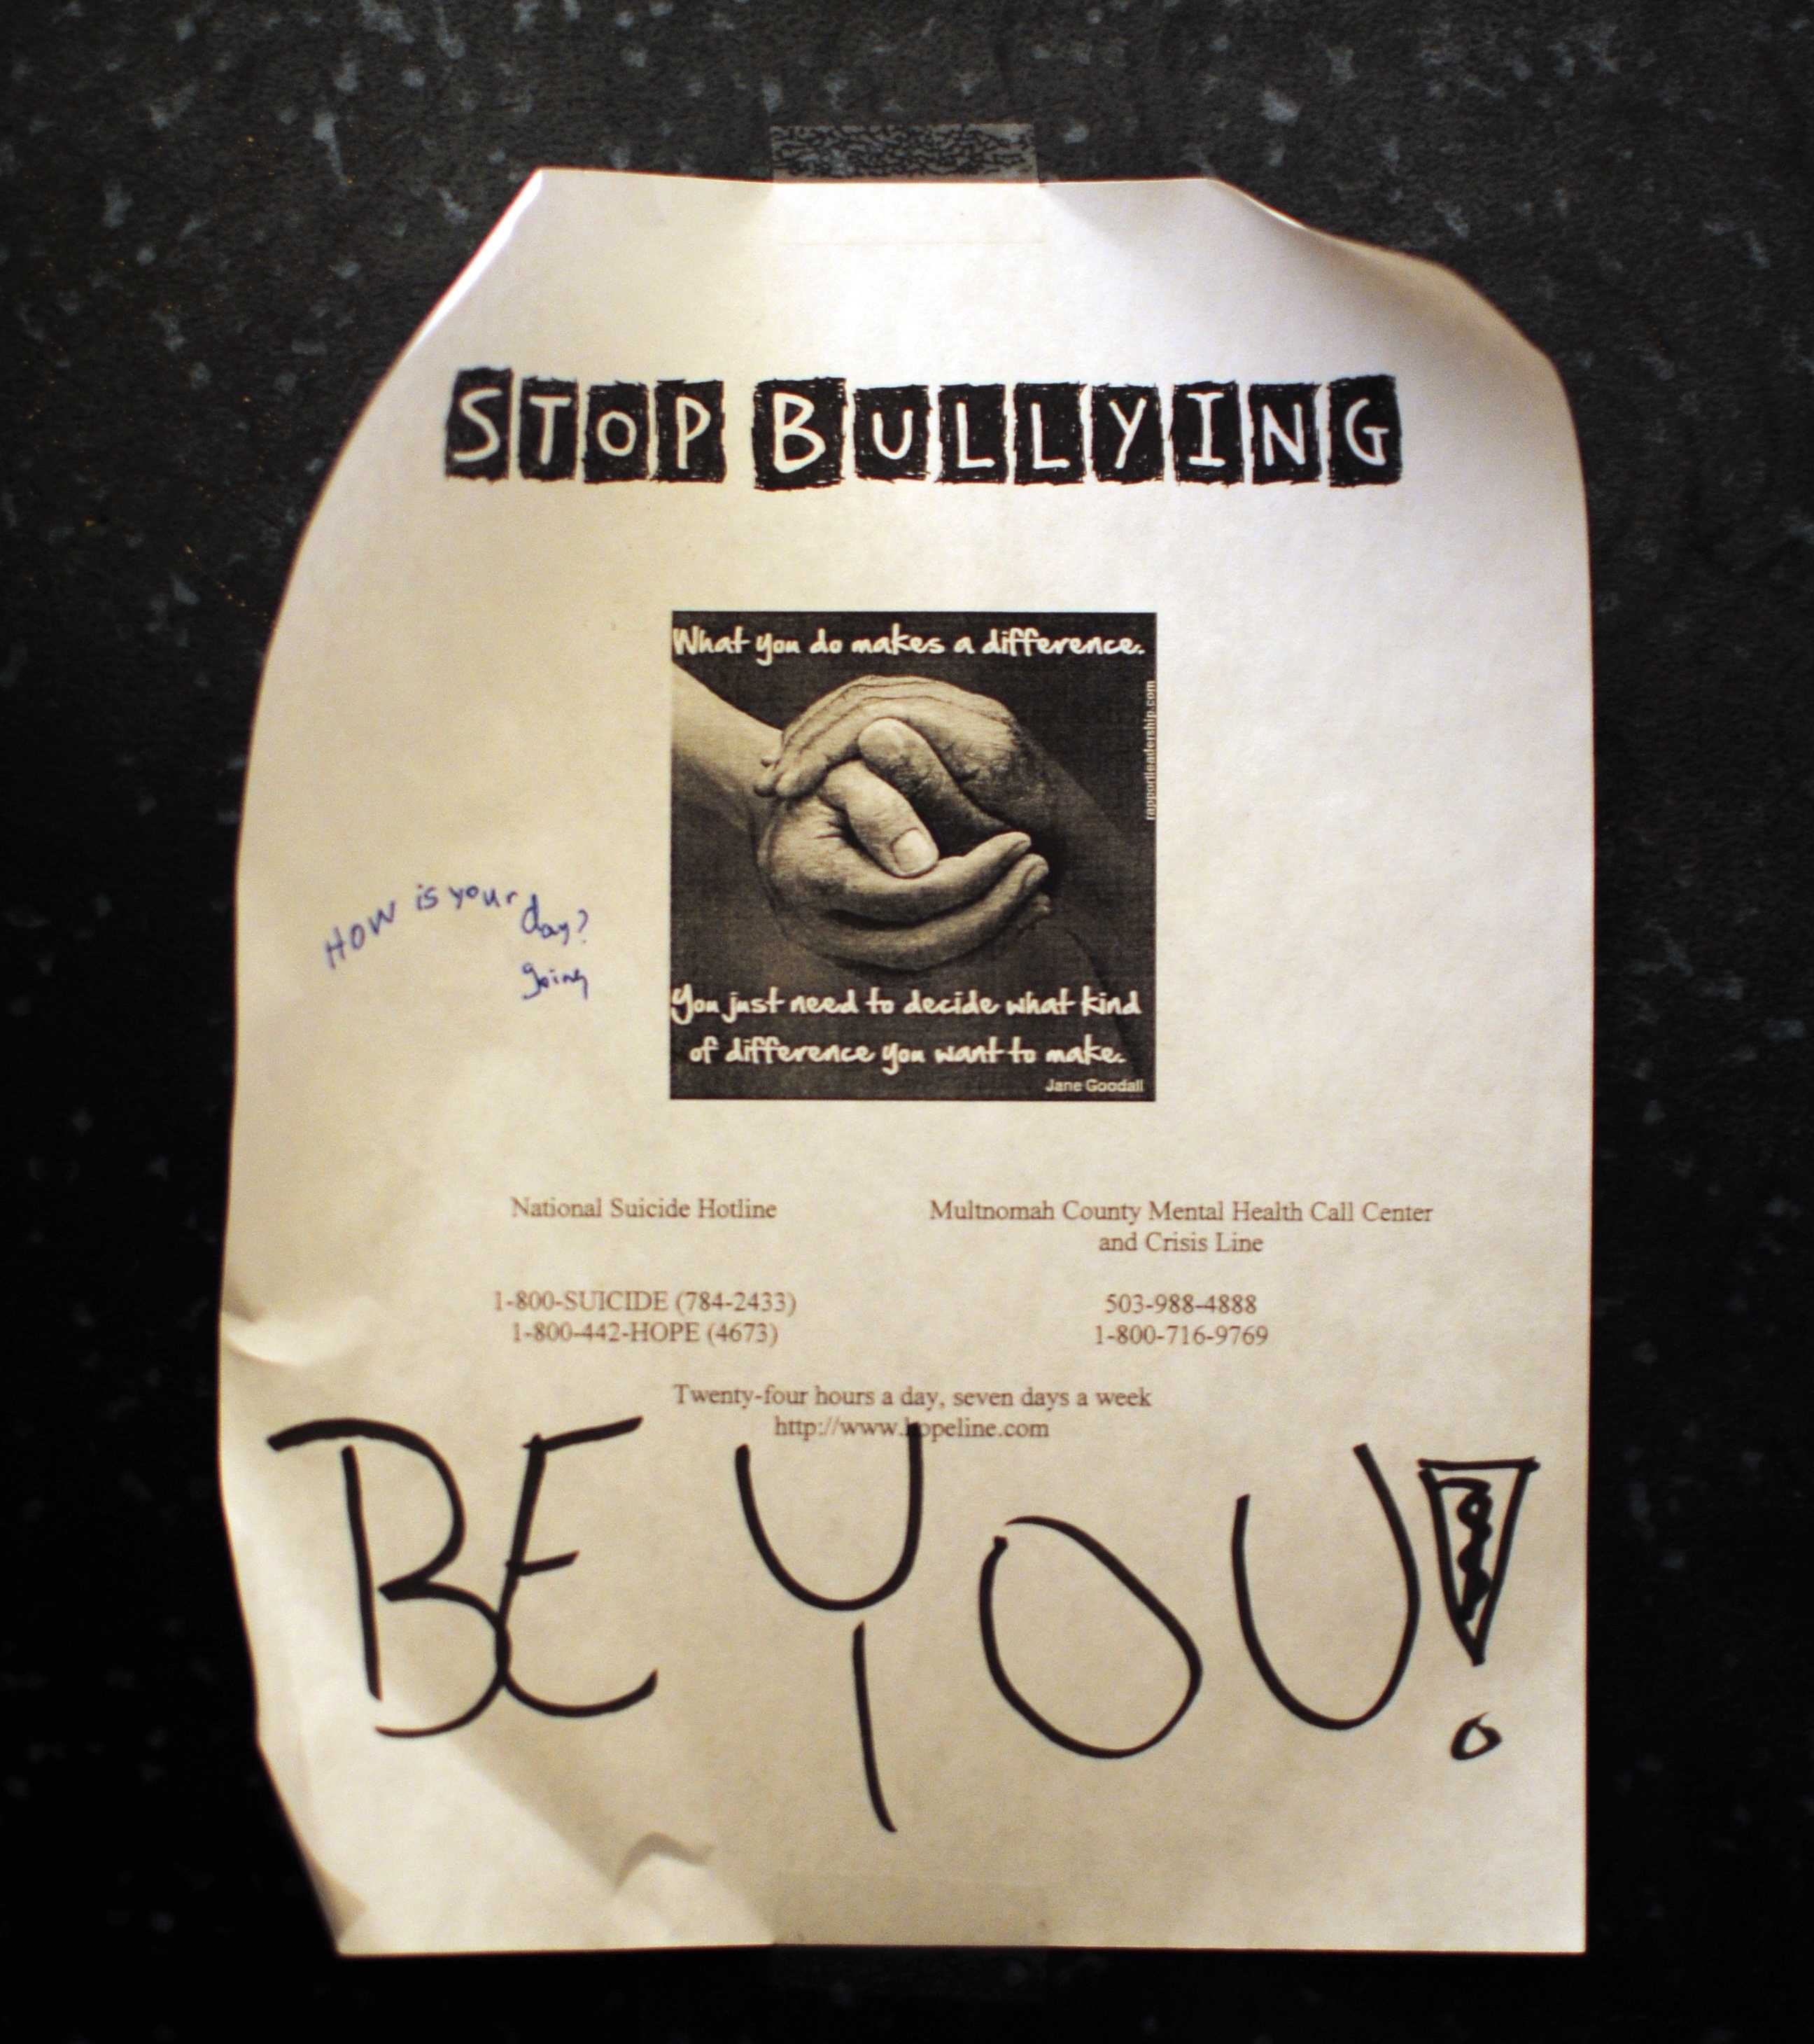 STOP BULLYING
What you do makes a difference.
rapportleadership.com
HOW is your day?
going
You just need to decide what kind
of difference you want to make.
Jane Goodall
National Suicide Hotline
1-800-SUICIDE (784-2433)
1-800-442-HOPE (4673)
Multnomah County Mental Health Call Center
and Crisis Line
503-988-4888
1-800-716-9769
Twenty-four hours a day, seven days a week
http://www.hopeline.com
BE YOU!